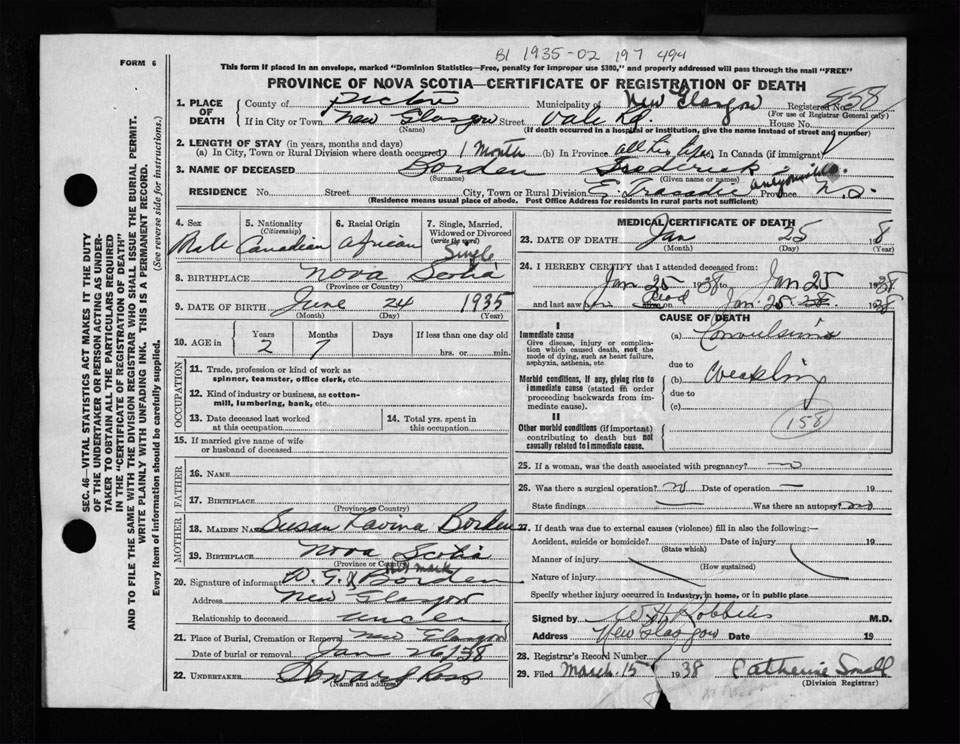 B1 1935-02 197 494
FORM 6
This form if placed in an envelope, marked "Dominion Statistics—Free, penalty for improper use $300," and properly addressed will pass through the mail "FREE"
PROVINCE OF NOVA SCOTIA—CERTIFICATE OF REGISTRATION OF DEATH
1. PLACE OF DEATH County of Pictou Municipality of New Glasgow Registered No. 558
(For use of Registrar General only)
If in City or Town New Glasgow Street Vale Rd. House No.
(Name) (If death occurred in a hospital or institution, give the name instead of street and number)
2. LENGTH OF STAY (in years, months and days)
(a) In City, Town or Rural Division where death occurred? 1 Month (b) In Province all his life (c) In Canada (if immigrant)
3. NAME OF DECEASED Borden Frederick
(Surname) (Given name or names)
RESIDENCE No. Street City, Town or Rural Division E. Tracadie Antigonish Co. Province N.S.
(Residence means usual place of abode. Post Office Address for residents in rural parts not sufficient)
4. Sex Male
5. Nationality (Citizenship) Canadian
6. Racial Origin African
7. Single, Married, Widowed or Divorced (write the word) Single
8. BIRTHPLACE Nova Scotia
(Province or Country)
9. DATE OF BIRTH June 24 1935
(Month) (Day) (Year)
10. AGE in Years Months Days If less than one day old
2 7 hrs. or min.
OCCUPATION
11. Trade, profession or kind of work as spinner, teamster, office clerk, etc.
12. Kind of industry or business, as cotton-mill, lumbering, bank, etc.
13. Date deceased last worked at this occupation
14. Total yrs. spent in this occupation
15. If married give name of wife or husband of deceased
FATHER
16. NAME
17. BIRTHPLACE
(Province or Country)
MOTHER
18. MAIDEN NAME Susan Lavina Borden
19. BIRTHPLACE Nova Scotia
(Province or Country)
20. Signature of informant W. G. X Borden
his mark
Address New Glasgow
Relationship to deceased uncle
21. Place of Burial, Cremation or Removal New Glasgow
Date of burial or removal Jan 26/38
22. UNDERTAKER Howard Ross
(Name and address)
MEDICAL CERTIFICATE OF DEATH
23. DATE OF DEATH Jan 25 8
(Month) (Day) (Year)
24. I HEREBY CERTIFY that I attended deceased from:
Jan 25 1938 to Jan 25 1938
and last saw him dead on Jan. 25 1938
CAUSE OF DEATH
I
Immediate cause
Give disease, injury or complication which caused death, not the mode of dying, such as heart failure, asphyxia, asthenia, etc.
(a) Convulsions
due to
Morbid conditions, if any, giving rise to immediate cause (stated in order proceeding backwards from immediate cause).
(b) weakling
due to
(c)
158
II
Other morbid conditions (if important) contributing to death but not causally related to immediate cause.
25. If a woman, was the death associated with pregnancy?
26. Was there a surgical operation? no Date of operation — 19
State findings — Was there an autopsy? no
27. If death was due to external causes (violence) fill in also the following:
Accident, suicide or homicide? Date of injury 19
(State which)
Manner of injury
(How sustained)
Nature of injury
Specify whether injury occurred in industry, in home, or in public place
Signed by W H Robbins M.D.
Address New Glasgow Date 19
28. Registrar's Record Number
29. Filed March 15 1938 Catherine Small
(Division Registrar)
SEC. 46—VITAL STATISTICS ACT MAKES IT THE DUTY
OF THE UNDERTAKER OR PERSON ACTING AS UNDER-
TAKER TO OBTAIN ALL THE PARTICULARS REQUIRED
IN THE "CERTIFICATE OF REGISTRATION OF DEATH"
AND TO FILE THE SAME WITH THE DIVISION REGISTRAR WHO SHALL ISSUE THE BURIAL PERMIT.
WRITE PLAINLY WITH UNFADING INK. THIS IS A PERMANENT RECORD.
Every item of information should be carefully supplied. (See reverse side for instructions.)